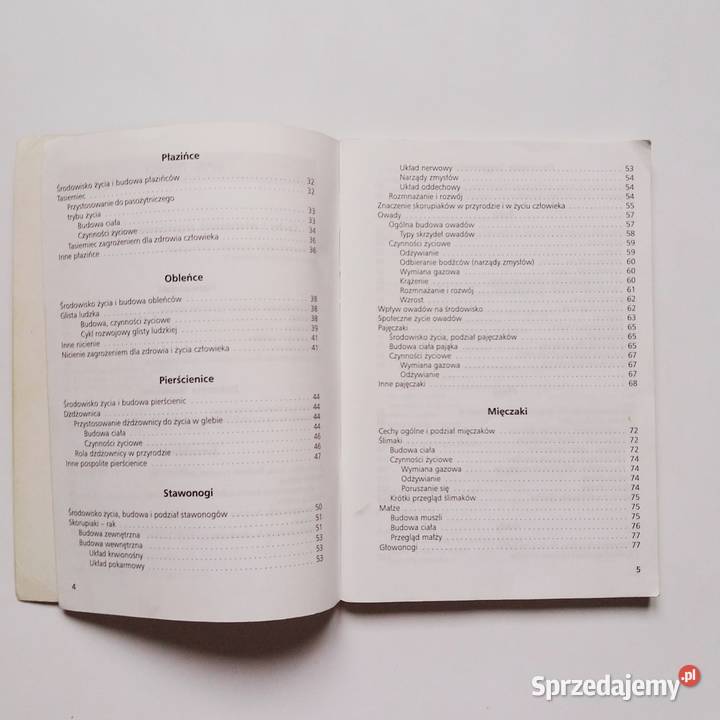 Płazińce
Środowisko życia i budowa płazińców 32
Tasiemiec 32
Przystosowanie do pasożytniczego
trybu życia 33
Budowa ciała 33
Czynności życiowe 34
Tasiemiec zagrożeniem dla zdrowia człowieka 36
Inne płazińce 36
Obleńce
Środowisko życia i budowa obleńców 38
Glista ludzka 38
Budowa, czynności życiowe 38
Cykl rozwojowy glisty ludzkiej 39
Inne nicienie 41
Nicienie zagrożeniem dla zdrowia i życia człowieka 41
Pierścienice
Środowisko życia i budowa pierścienic 44
Dżdżownica 44
Przystosowanie dżdżownicy do życia w glebie 44
Budowa ciała 44
Czynności życiowe 46
Rola dżdżownicy w przyrodzie 46
Inne pospolite pierścienice 47
Stawonogi
Środowisko życia, budowa i podział stawonogów 50
Skorupiaki – rak 51
Budowa zewnętrzna 51
Budowa wewnętrzna 53
Układ krwionośny 53
Układ pokarmowy 53
4
Układ nerwowy 53
Narządy zmysłów 54
Układ oddechowy 54
Rozmnażanie i rozwój 54
Znaczenie skorupiaków w przyrodzie i w życiu człowieka 55
Owady 57
Ogólna budowa owadów 57
Typy skrzydeł owadów 58
Czynności życiowe 59
Odżywianie 59
Odbieranie bodźców (narządy zmysłów) 60
Wymiana gazowa 60
Krążenie 60
Rozmnażanie i rozwój 61
Wzrost 62
Wpływ owadów na środowisko 62
Społeczne życie owadów 63
Pajęczaki 65
Środowisko życia, podział pajęczaków 65
Budowa ciała pająka 65
Czynności życiowe 67
Wymiana gazowa 67
Odżywianie 67
Inne pajęczaki 68
Mięczaki
Cechy ogólne i podział mięczaków 72
Ślimaki 72
Budowa ciała 72
Czynności życiowe 74
Wymiana gazowa 74
Odżywianie 74
Poruszanie się 74
Krótki przegląd ślimaków 75
Małże 75
Budowa muszli 75
Budowa ciała 76
Przegląd małży 77
Głowonogi 77
5
Sprzedajemy.pl